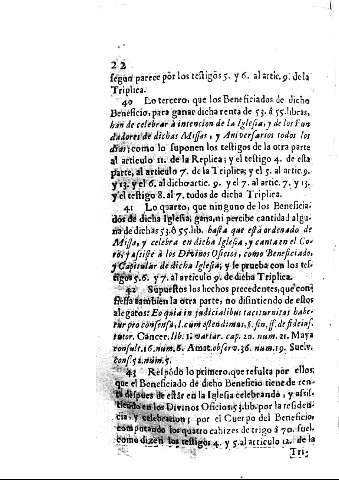 22
segun parece por los testigos 5. y 6. al artic. 9. de la
Triplica.
40 Lo tercero, que los Beneficiados de dicho
Beneficio, para ganar dicha renta de 53. à 55. libras,
han de celebrar à intencion de la Iglesia, y de los Fun
dadores de dichas Missas, y Aniversarios todos los
dias; como lo suponen los testigos de la otra parte
al articulo 11. de la Replica; y el testigo 4. de esta
parte, al articulo 7. de la Triplica; y el 5. al artic. 9.
y 13. y el 6. al dicho artic. 9. y el 7. al artic. 7. y 13.
y el testigo 8. al 7. todos de dicha Triplica.
41 Lo quarto, que ninguno de los Beneficia-
dos de dicha Iglesia, gana, ni percibe cantidad algu-
na de dichas 53. ò 55. lib. hasta que està ordenado de
Missa, y celebra en dicha Iglesia, y canta en el Co-
ro, y assiste à los Divinos Oficios, como Beneficiado,
y Capitular de dicha Iglesia; y le prueba con los tes-
tigos 5. 6. y 7. al artic. 9. de dicha Triplica.
42 Supuestos los hechos precedentes, que con
fiessa tambien la otra parte, no disintiendo de estos
alegatos: Eo quia in judicialibus taciturnitas habe-
tur pro consensu, l. cum ostendimus. §. fin. ff. de fideius.
tutor. Cancer. lib. 1. variar. cap. 20. num. 21. Maya
consult. 16. num. 8. Amat. observ. 36. num. 19. Suelv.
cons. 52. num. 5.
43 Respõdo lo primero, que resulta por ellos,
que el Beneficiado de dicho Beneficio tiene de ren-
ta despues de estàr en la Iglesia celebrando, y assis-
tiendo en los Divinos Oficios 55. lib. por la residen-
cia, y celebracion; por el Cuerpo del Beneficio,
computando los quatro cahizes de trigo à 70. suel.
como dizen los testigos 4. y 5. al articulo 12. de la
Tri-